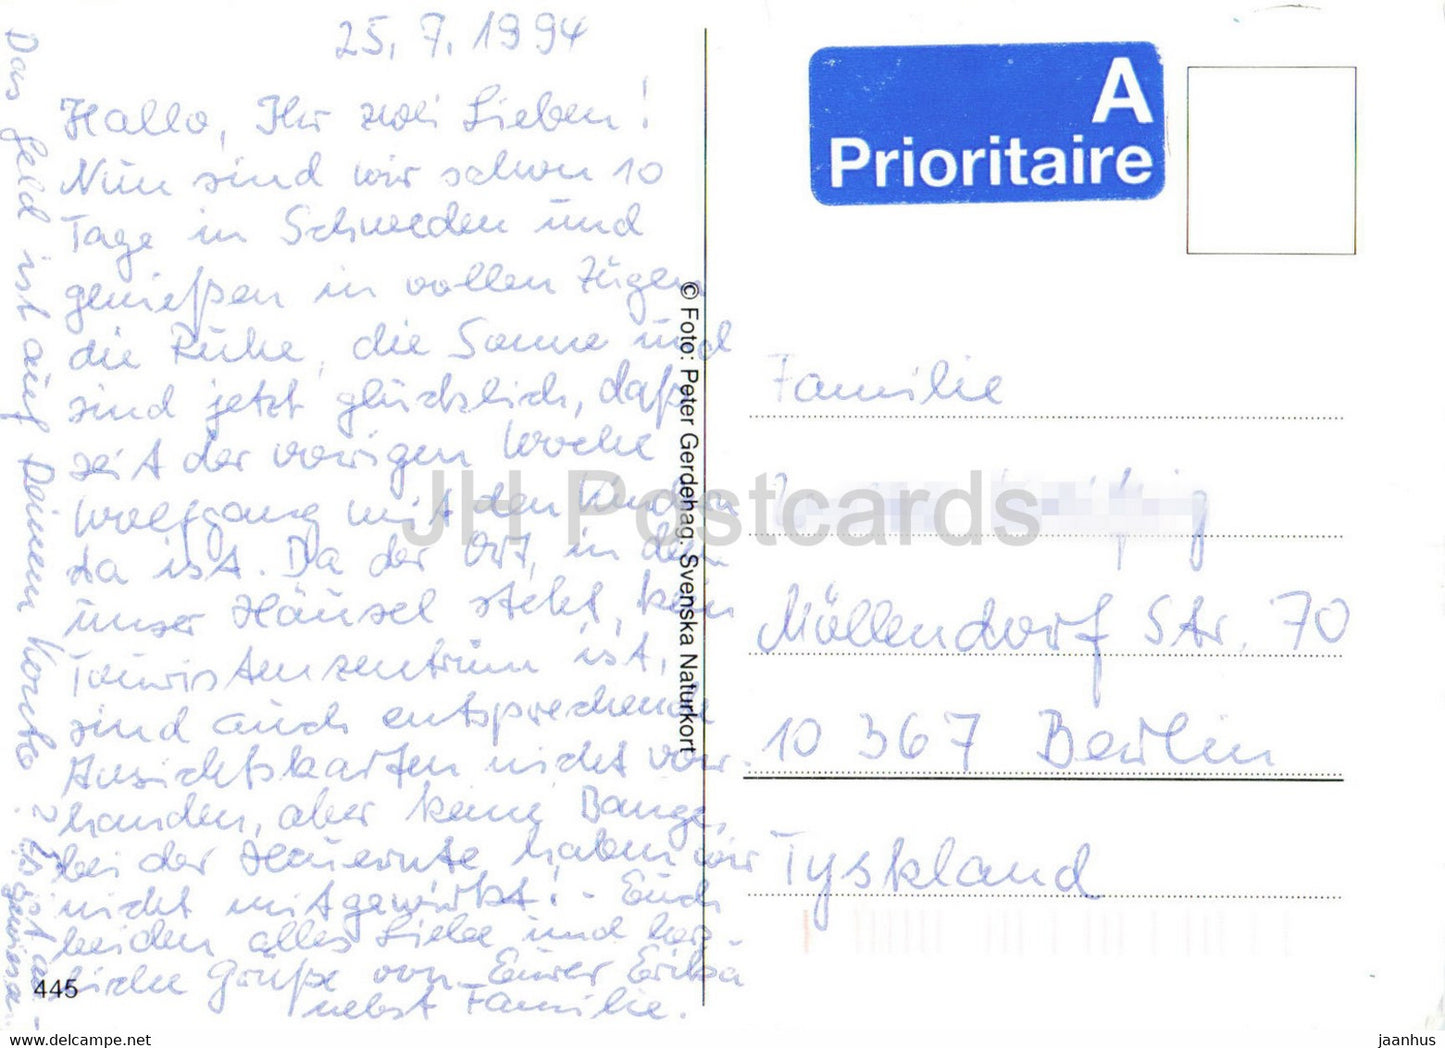 25.7.1994
Hallo, Ihr zwei Lieben!
Nun sind wir schon 10
Tage in Schweden und
genießen in vollen Zügen
die Ruhe, die Sonne und
sind jetzt glücklich, daß
seit der vorigen Woche
Wolfgang mit den Kindern
da ist. Da der Ort, in dem
unser Häusel steht, kein
Touristenzentrum ist,
sind auch entsprechende
Ansichtskarten nicht vor-
handen, aber keine Bange,
bei der Heuernte haben wir
nicht mitgewirkt! - Euch
beiden alles Liebe und herz-
liche Grüße von Eurer Erika
nebst Familie.
Das Geld ist auf Deinem Konto
445
© Foto: Peter Gerdehag. Svenska Naturkort
A
Prioritaire
Familie
Möllendorf Str. 70
10 367 Berlin
Tyskland
JH Postcards
www.delcampe.net
jaanhus